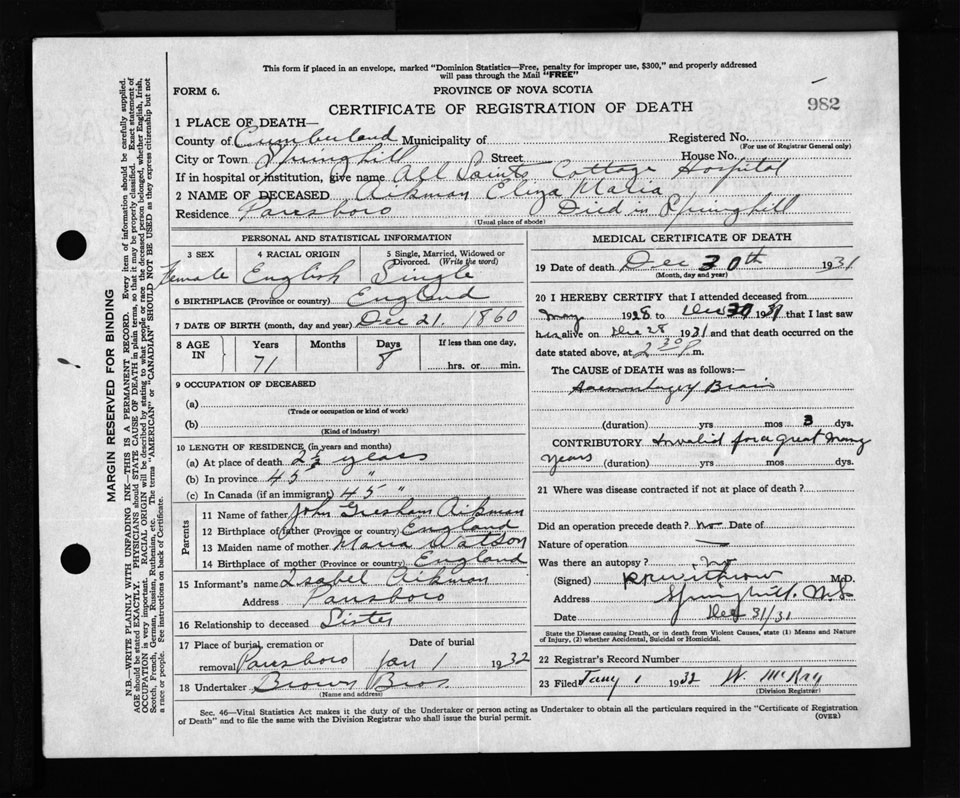 This form if placed in an envelope, marked "Dominion Statistics—Free, penalty for improper use, $300," and properly addressed
will pass through the Mail "FREE"
FORM 6.
PROVINCE OF NOVA SCOTIA
982
CERTIFICATE OF REGISTRATION OF DEATH
1 PLACE OF DEATH—
County of Cumberland Municipality of Registered No.
(For use of Registrar General only)
City or Town Springhill Street House No.
If in hospital or institution, give name All Saints Cottage Hospital
2 NAME OF DECEASED Aikman Eliza Maria
Residence Parrsboro Died in Springhill
(Usual place of abode)
PERSONAL AND STATISTICAL INFORMATION
3 SEX 4 RACIAL ORIGIN 5 Single, Married, Widowed or
Divorced. (Write the word)
Female English Single
6 BIRTHPLACE (Province or country) England
7 DATE OF BIRTH (month, day and year) Dec 21. 1860
8 AGE IN Years Months Days If less than one day,
71 8 hrs. or min.
9 OCCUPATION OF DECEASED
(a)
(Trade or occupation or kind of work)
(b)
(Kind of industry)
10 LENGTH OF RESIDENCE (in years and months)
(a) At place of death 2½ years
(b) In province 45 "
(c) In Canada (if an immigrant) 45 "
Parents
11 Name of father John Gresham Aikman
12 Birthplace of father (Province or country) England
13 Maiden name of mother Maria Watson
14 Birthplace of mother (Province or country) England
15 Informant's name Isabel Aikman
Address Parrsboro
16 Relationship to deceased Sister
17 Place of burial, cremation or Date of burial
removal Parrsboro Jan 1 1932
18 Undertaker Brown Bros.
(Name and address)
MEDICAL CERTIFICATE OF DEATH
19 Date of death Dec 30th 1931
(Month, day and year)
20 I HEREBY CERTIFY that I attended deceased from
May 1928 to Dec 30 1931 that I last saw
her alive on Dec 28 1931 and that death occurred on
the date stated above, at 2 30 P m.
The CAUSE of DEATH was as follows:—
Haemorrhage of Brain
(duration) yrs mos 3 dys.
CONTRIBUTORY Invalid for a great many
years (duration) yrs mos dys.
21 Where was disease contracted if not at place of death?
Did an operation precede death? no Date of
Nature of operation —
Was there an autopsy? no
(Signed) Withrow M.D.
Address Springhill, N.S.
Date Dec 31/31
State the Disease causing Death, or in death from Violent Causes, state (1) Means and Nature
of Injury, (2) whether Accidental, Suicidal or Homicidal.
22 Registrar's Record Number
23 Filed Jany 1 1932 W. McKay
(Division Registrar)
Sec. 46—Vital Statistics Act makes it the duty of the Undertaker or person acting as Undertaker to obtain all the particulars required in the "Certificate of Registration
of Death" and to file the same with the Division Registrar who shall issue the burial permit.
(OVER)
MARGIN RESERVED FOR BINDING
N.B.—WRITE PLAINLY WITH UNFADING INK—THIS IS A PERMANENT RECORD. Every item of information should be carefully supplied.
AGE should be stated EXACTLY. PHYSICIANS should STATE CAUSE OF DEATH in plain terms, so that it may be properly classified. Exact statement of
OCCUPATION is very important. RACIAL ORIGIN will be described by stating to what people or race the deceased person belonged, whether English, Irish,
Scotch, French, German, Russian, Ruthenian, etc. The terms "AMERICAN" or "CANADIAN" SHOULD NOT BE USED as they express citizenship but not
a race or people. See instructions on back of Certificate.